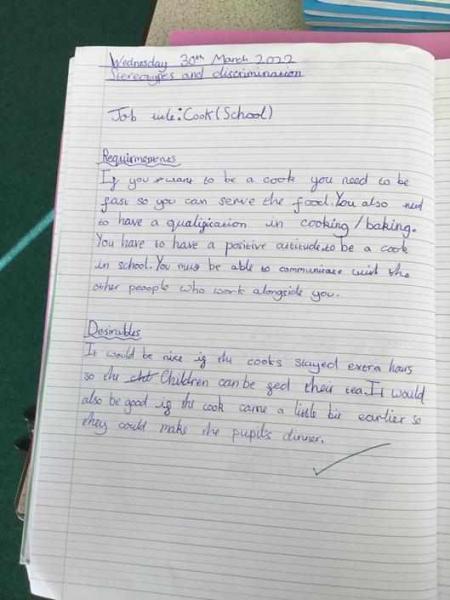 Wednesday 30th March 2022
Stereotypes and discrimination
Job title: Cook (School)
Requirmements
If you want to be a cook you need to be
fast so you can serve the food. You also need
to have a qualification in cooking/baking.
You have to have a positive attitude to be a cook
in school. You must be able to communicate with the
other peaople who work alongside you.
Desirables
It would be nice if the cooks stayed extra hours
so the Children can be fed their tea. It would
also be good if the cook came a little bit earlier so
they could make the pupils dinner.